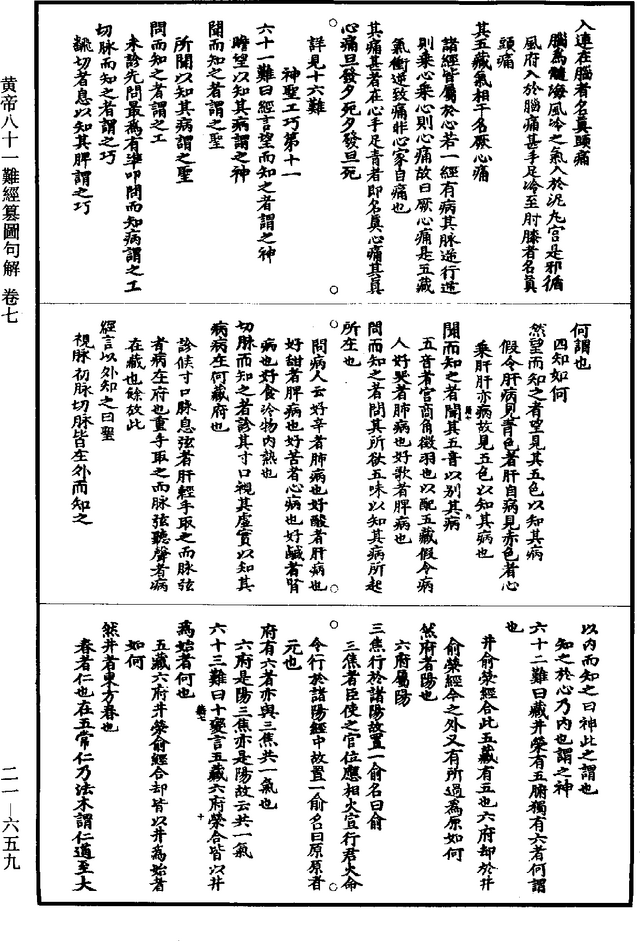 入連在腦者名真頭痛
腦為髓海風冷之氣入於泥丸宮是邪循
風府入於腦痛甚手足冷至肘膝者名真
頭痛
其五藏氣相干名厥心痛
諸經皆屬於心若一經有病其脉逆行逆
則乘心乘心則心痛故曰厥心痛是五藏
氣衝逆致痛非心家自痛也
其痛甚者在心手足青者即名真心痛其真
心痛旦發夕死夕發旦死
詳見十六難
神聖工巧第十一
六十一難曰經言望而知之者謂之神
瞻望以知其病謂之神
聞而知之者謂之聖
所聞以知其病謂之聖
問而知之者謂之工
未診先問最為有準叩問而知病謂之工
切脉而知之者謂之巧
診切者息以知其脾謂之巧
何謂也
四知如何
然望而知之者望見其五色以知其病
假令肝病見青色者肝自病見赤色者心
乘肝肝亦病故見五色以知其病也
聞而知之者聞其五音以別其病
五音者宮商角徵羽也以配五藏假令病
人好哭者肺病也好歌者脾病也
問而知之者問其所欲五味以知其病所起
所在也
問病人云好辛者肺病也好酸者肝病也
好甜者脾病也好苦者心病也好鹹者腎
病也好食冷物內熱也
切脉而知之者診其寸口視其虛實以知其
病病在何藏府也
診候寸口脉息弦者肝輕手取之而脉弦
者病在府也重手取之而脉弦聽聲者病
在藏也餘故此
經言以外知之曰聖
視脉初脉切脉皆在外而知之
以內而知之曰神此之謂也
知之於心乃內也謂之神
六十二難曰藏井榮有五腑獨有六者何謂
也
井俞榮經合此五藏有五也六府却於井
俞榮經合之外又有所過為原如何
然府者陽也
六府屬陽
三焦行於諸陽故置一俞名曰俞
三焦者臣使之官位應相火宣行君火命
令行於諸陽經中故置一俞名曰原原者
元也
府有六者亦與三焦共一氣也
六府是陽三焦亦是陽故云共一氣
六十三難曰十變言五藏六府榮合皆以井
為始者何也
五藏六府井榮俞經合却皆以井為始者
如何
然井者東方春也
春者仁也在五常仁乃法木謂仁道至大
黃帝八十一難經纂圖句解 卷七
二一—六五九